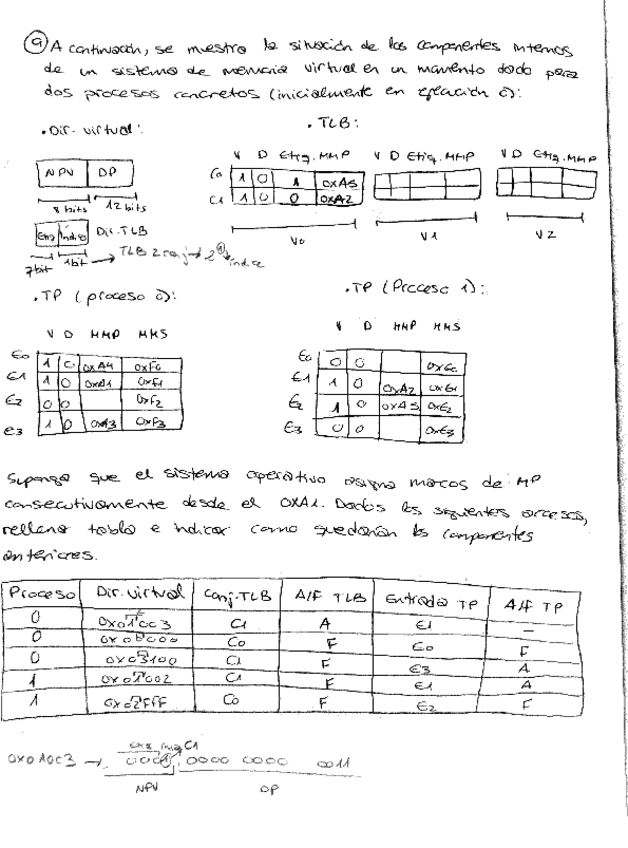 9 A continuación, se muestra la situación de los componentes internos
de un sistema de memoria virtual en un momento dado para
dos procesos concretos (inicialmente en ejecución 0):
.Dir. virtual:
.TLB:
NPV DP
8 bits 12 bits
Etiq índice Dir. TLB
7bit 1bit → TLB 2 conj → 2 índice
V D Etiq. MMP V D Etiq. MMP V D Etiq. MMP
C0 1 0 1 0xA5
C1 1 0 0 0xA2
V0 V1 V2
.TP (proceso 0):
V D MMP MMS
E0 1 0 0xA4 0xF0
E1 1 0 0xA1 0xF1
E2 0 0 0xF2
E3 1 0 0xA3 0xF3
.TP (Proceso 1):
V D MMP MMS
E0 0 0 0xE0
E1 1 0 0xA2 0xE1
E2 1 0 0xA5 0xE2
E3 0 0 0xE3
Suponga que el sistema operativo asigna marcos de MP
consecutivamente desde el 0XA1. Dados los siguientes accesos,
rellena tabla e indicar como quedarían los componentes
anteriores.
Proceso Dir. virtual Conj. TLB A/F TLB Entrada TP A/F TP
0 0x010C3 C1 A E1 —
0 0x00000 C0 F E0 F
0 0x03100 C1 F E3 A
1 0x01002 C1 F E1 A
1 0x02FFF C0 F E2 F
etiq índ C1
0x010C3 → 0000 0000 0000 0011
NPV DP